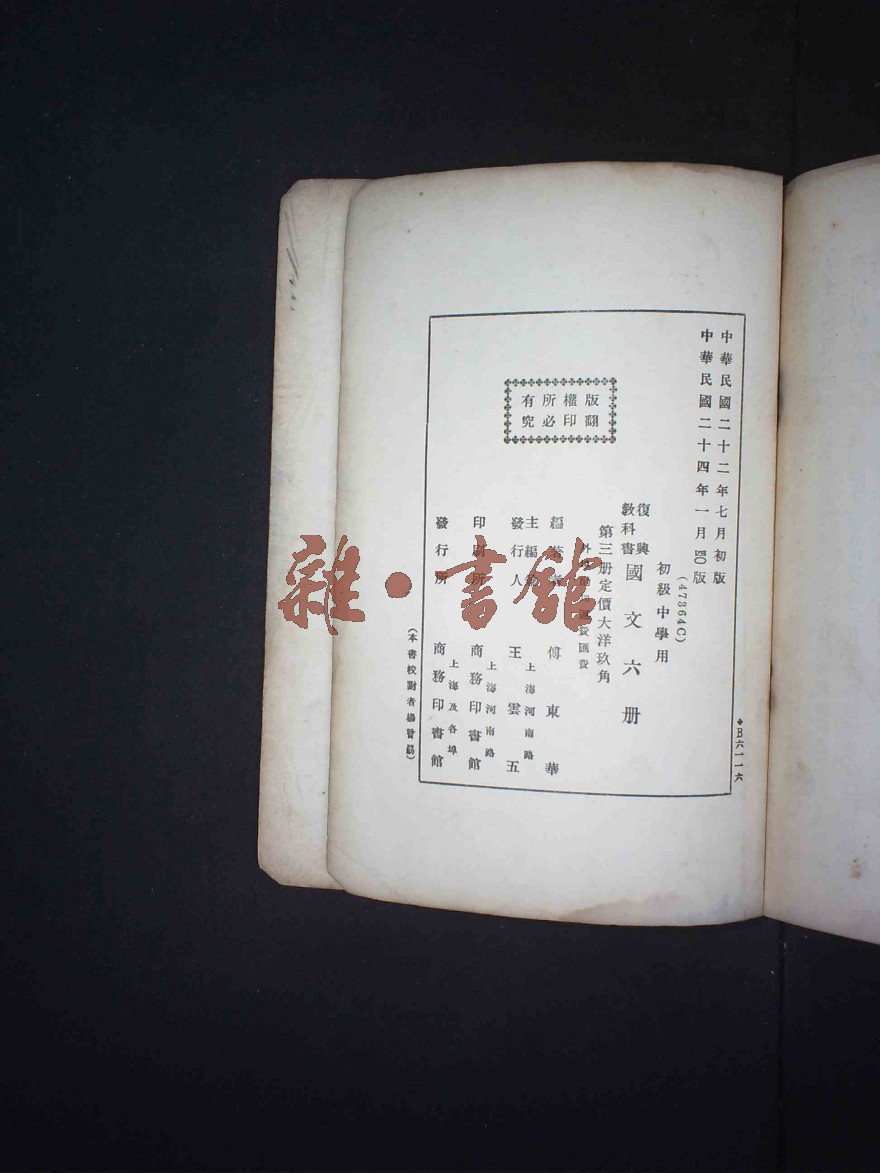 中華民國二十二年七月初版
中華民國二十四年一月50版
(47364C)
初級中學用
復興
教科書
國文六册
第三册定價大洋玖角
外埠酌加運費匯費
編著者 傅東華
主編兼
發行人 王雲五
上海河南路
印刷所 商務印書館
上海河南路
發行所 商務印書館
上海及各埠
版權所有
翻印必究
(本書校對者
◆B六一一六
雜·書館